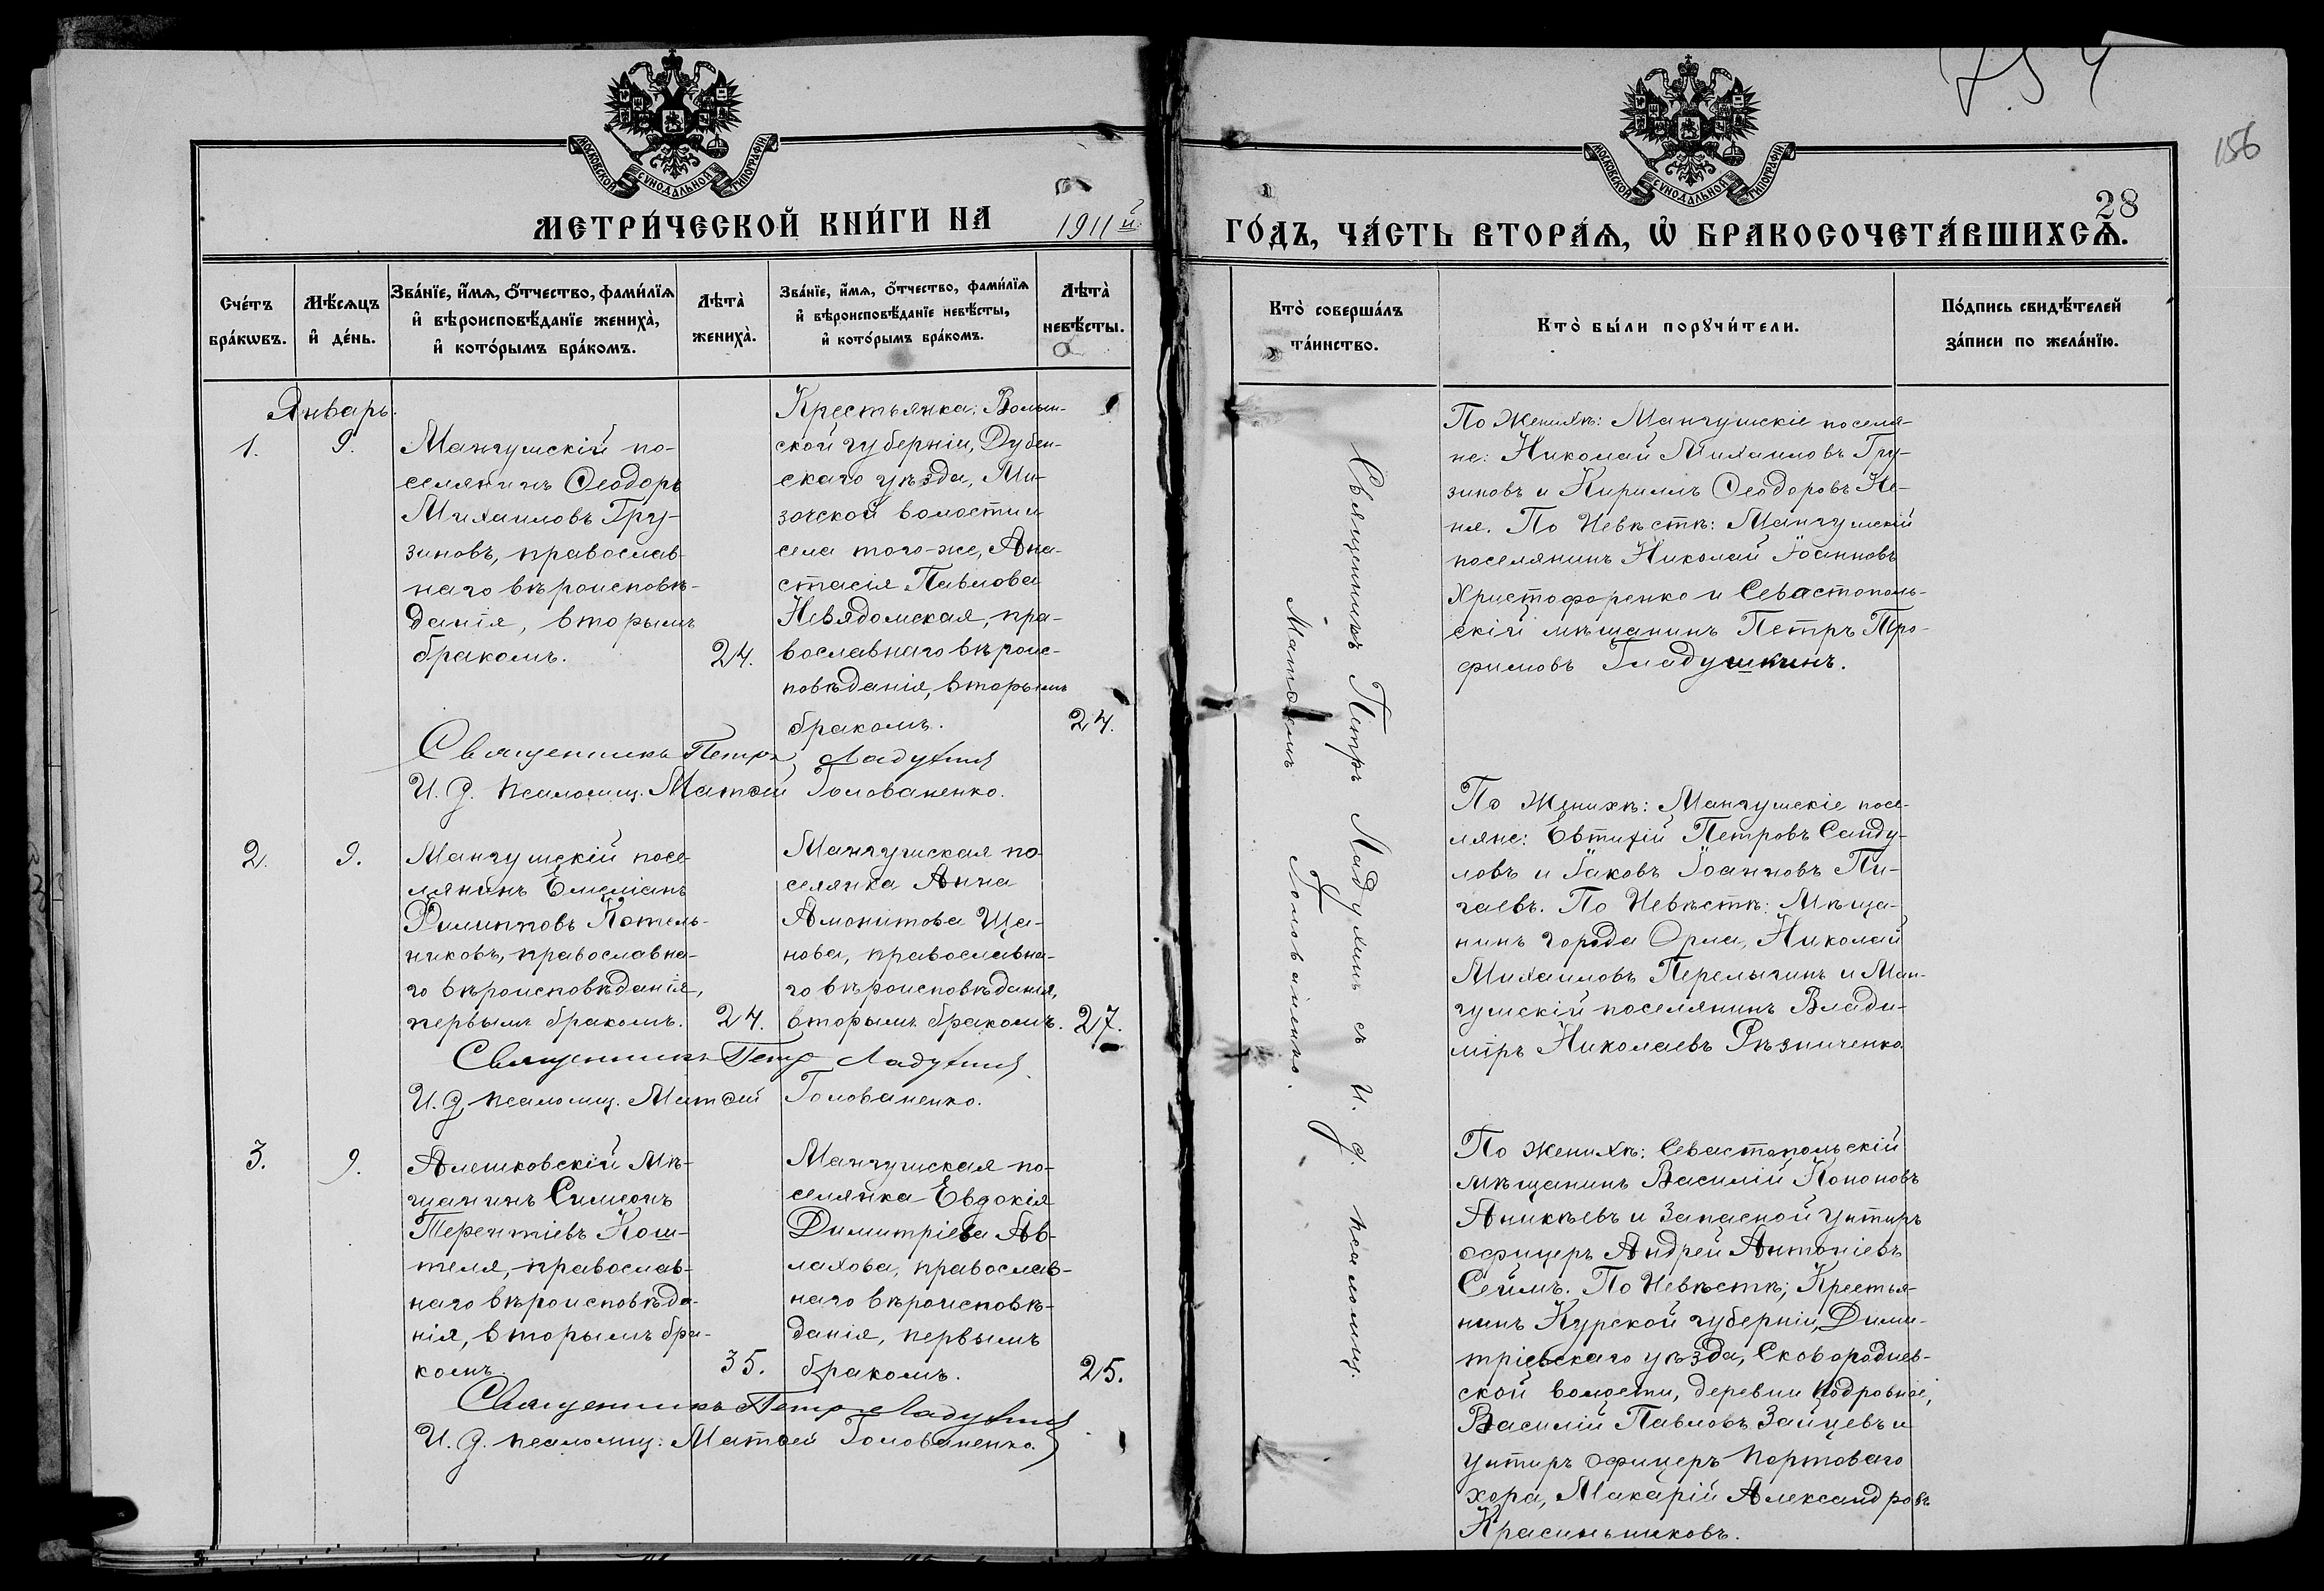 754
156
28
МОСКОВСКОЙ СѴНОДАЛЬНОЙ ТИПОГРАФІИ
МОСКОВСКОЙ СѴНОДАЛЬНОЙ ТИПОГРАФІИ
МЕТРИ́ЧЕСКОЙ КНИ́ГИ НА 1911й
ГО́ДЪ, ЧА́СТЬ ВТОРА́Ѧ, Ѡ҆ БРАКОСОЧЕТА́ВШИХСѦ.
Сче́тъ бра́кѡвъ.
Мѣ́сѧцъ и҆ де́нь.
Зва́нїе, и҆́мѧ, ѻ҆́тчество, фами́лїѧ
и҆ вѣроисповѣ́данїе жениха̀,
и҆ кото́рымъ бра́комъ.
Лѣта̀ жениха̀.
Зва́нїе, и҆́мѧ, ѻ҆́тчество, фами́лїѧ
и҆ вѣроисповѣ́данїе невѣ́сты,
и҆ кото́рымъ бра́комъ.
Лѣта̀ невѣ́сты.
Кто̀ соверша́лъ та́инство.
Кто̀ бы́ли порꙋчи́тели.
По́дпись свидѣ́телей за́писи по жела́нїю.
Январь.
1.
9.
Мангушскій по-
селянинъ Ѳеодоръ
Михаиловъ Гру-
зиновъ, православ-
наго вѣроисповѣ-
данія, вторымъ
бракомъ.
24.
Крестьянка: Волын-
ской губерніи, Дубен-
скаго уѣзда, Ми-
зочской волости и
села того-же, Ана-
стасія Павлова
Невядомская, пра-
вославнаго вѣроис-
повѣданія, вторымъ
бракомъ.
24.
Священникъ Петръ Ладухинъ
И. д. псаломщ. Матѳей Голованенко.
2.
9.
Мангушскій посе-
лянинъ Емеліанъ
Филипповъ Котель-
никовъ, православна-
го вѣроисповѣданія,
первымъ бракомъ.
24.
Мангушская по-
селянка Анна
Амонитова Ща-
нова, православна-
го вѣроисповѣданія,
вторымъ бракомъ.
27.
Священникъ Петръ Ладухинъ
И. д. псаломщ. Матѳей Голованенко.
3.
9.
Алешковскій мѣ-
щанинъ Симеонъ
Терентіевъ Кош-
теля, православ-
наго вѣроисповѣда-
нія, вторымъ бра-
комъ
35.
Мангушская по-
селянка Евдокія
Димитріева Ав-
лахова, православ-
наго вѣроисповѣ-
данія, первымъ
бракомъ.
25.
Священникъ Петръ Ладухинъ
И. д. псаломщ. Матѳей Голованенко.
Священникъ Петръ Ладухинъ съ И. д. псаломщ.
Матѳеемъ Голованенко.
По Женихѣ: Мангушскіе поселя-
не: Николай Михаиловъ Гру-
зиновъ и Кириллъ Ѳеодоровъ Не-
ня. По Невѣстѣ: Мангушскій
поселянинъ Николай Іоанновъ
Христофоренко и Севастополь-
скій мѣщанинъ Петръ Тро-
фимовъ Гладушкинъ.
По Женихѣ: Мангушскіе посе-
ляне: Евтихій Петровъ Санду-
ловъ и Іаковъ Іоанновъ Пи-
гаевъ. По Невѣстѣ: Мѣща-
нинъ города Орла, Николай
Михаиловъ Перелыгинъ и Ман-
гушскій поселянинъ Влади-
міръ Николаевъ Рѣзниченко.
По женихѣ: Севастопольскій
мѣщанинъ Василій Кононовъ
Аникѣевъ и Запасной унтеръ
офицеръ Андрей Антоніевъ
Сеймъ. По Невѣстѣ; Крестья-
нинъ Курской губерніи, Дими-
тріевскаго уѣзда, Сковороднев-
ской волости, деревни
Василій Павловъ Зайцевъ и
унтеръ офицеръ портоваго
хора, Макарій Александровъ
Красиньшиковъ.